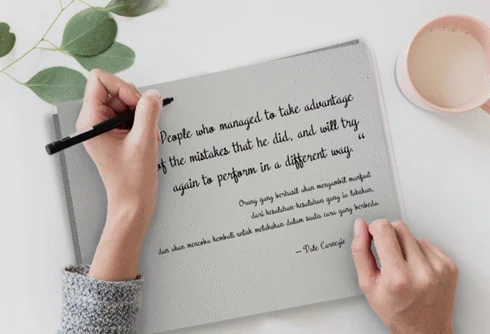 People who managed to take advantage
of the mistakes that he did, and will try
again to perform in a different way. “
Orang yang berhasil akan mengambil manfaat
dari kesalahan-kesalahan yang ia lakukan,
dan akan mencoba kembali untuk melakukan dalam suatu cara yang berbeda.
— Dale Carnegie